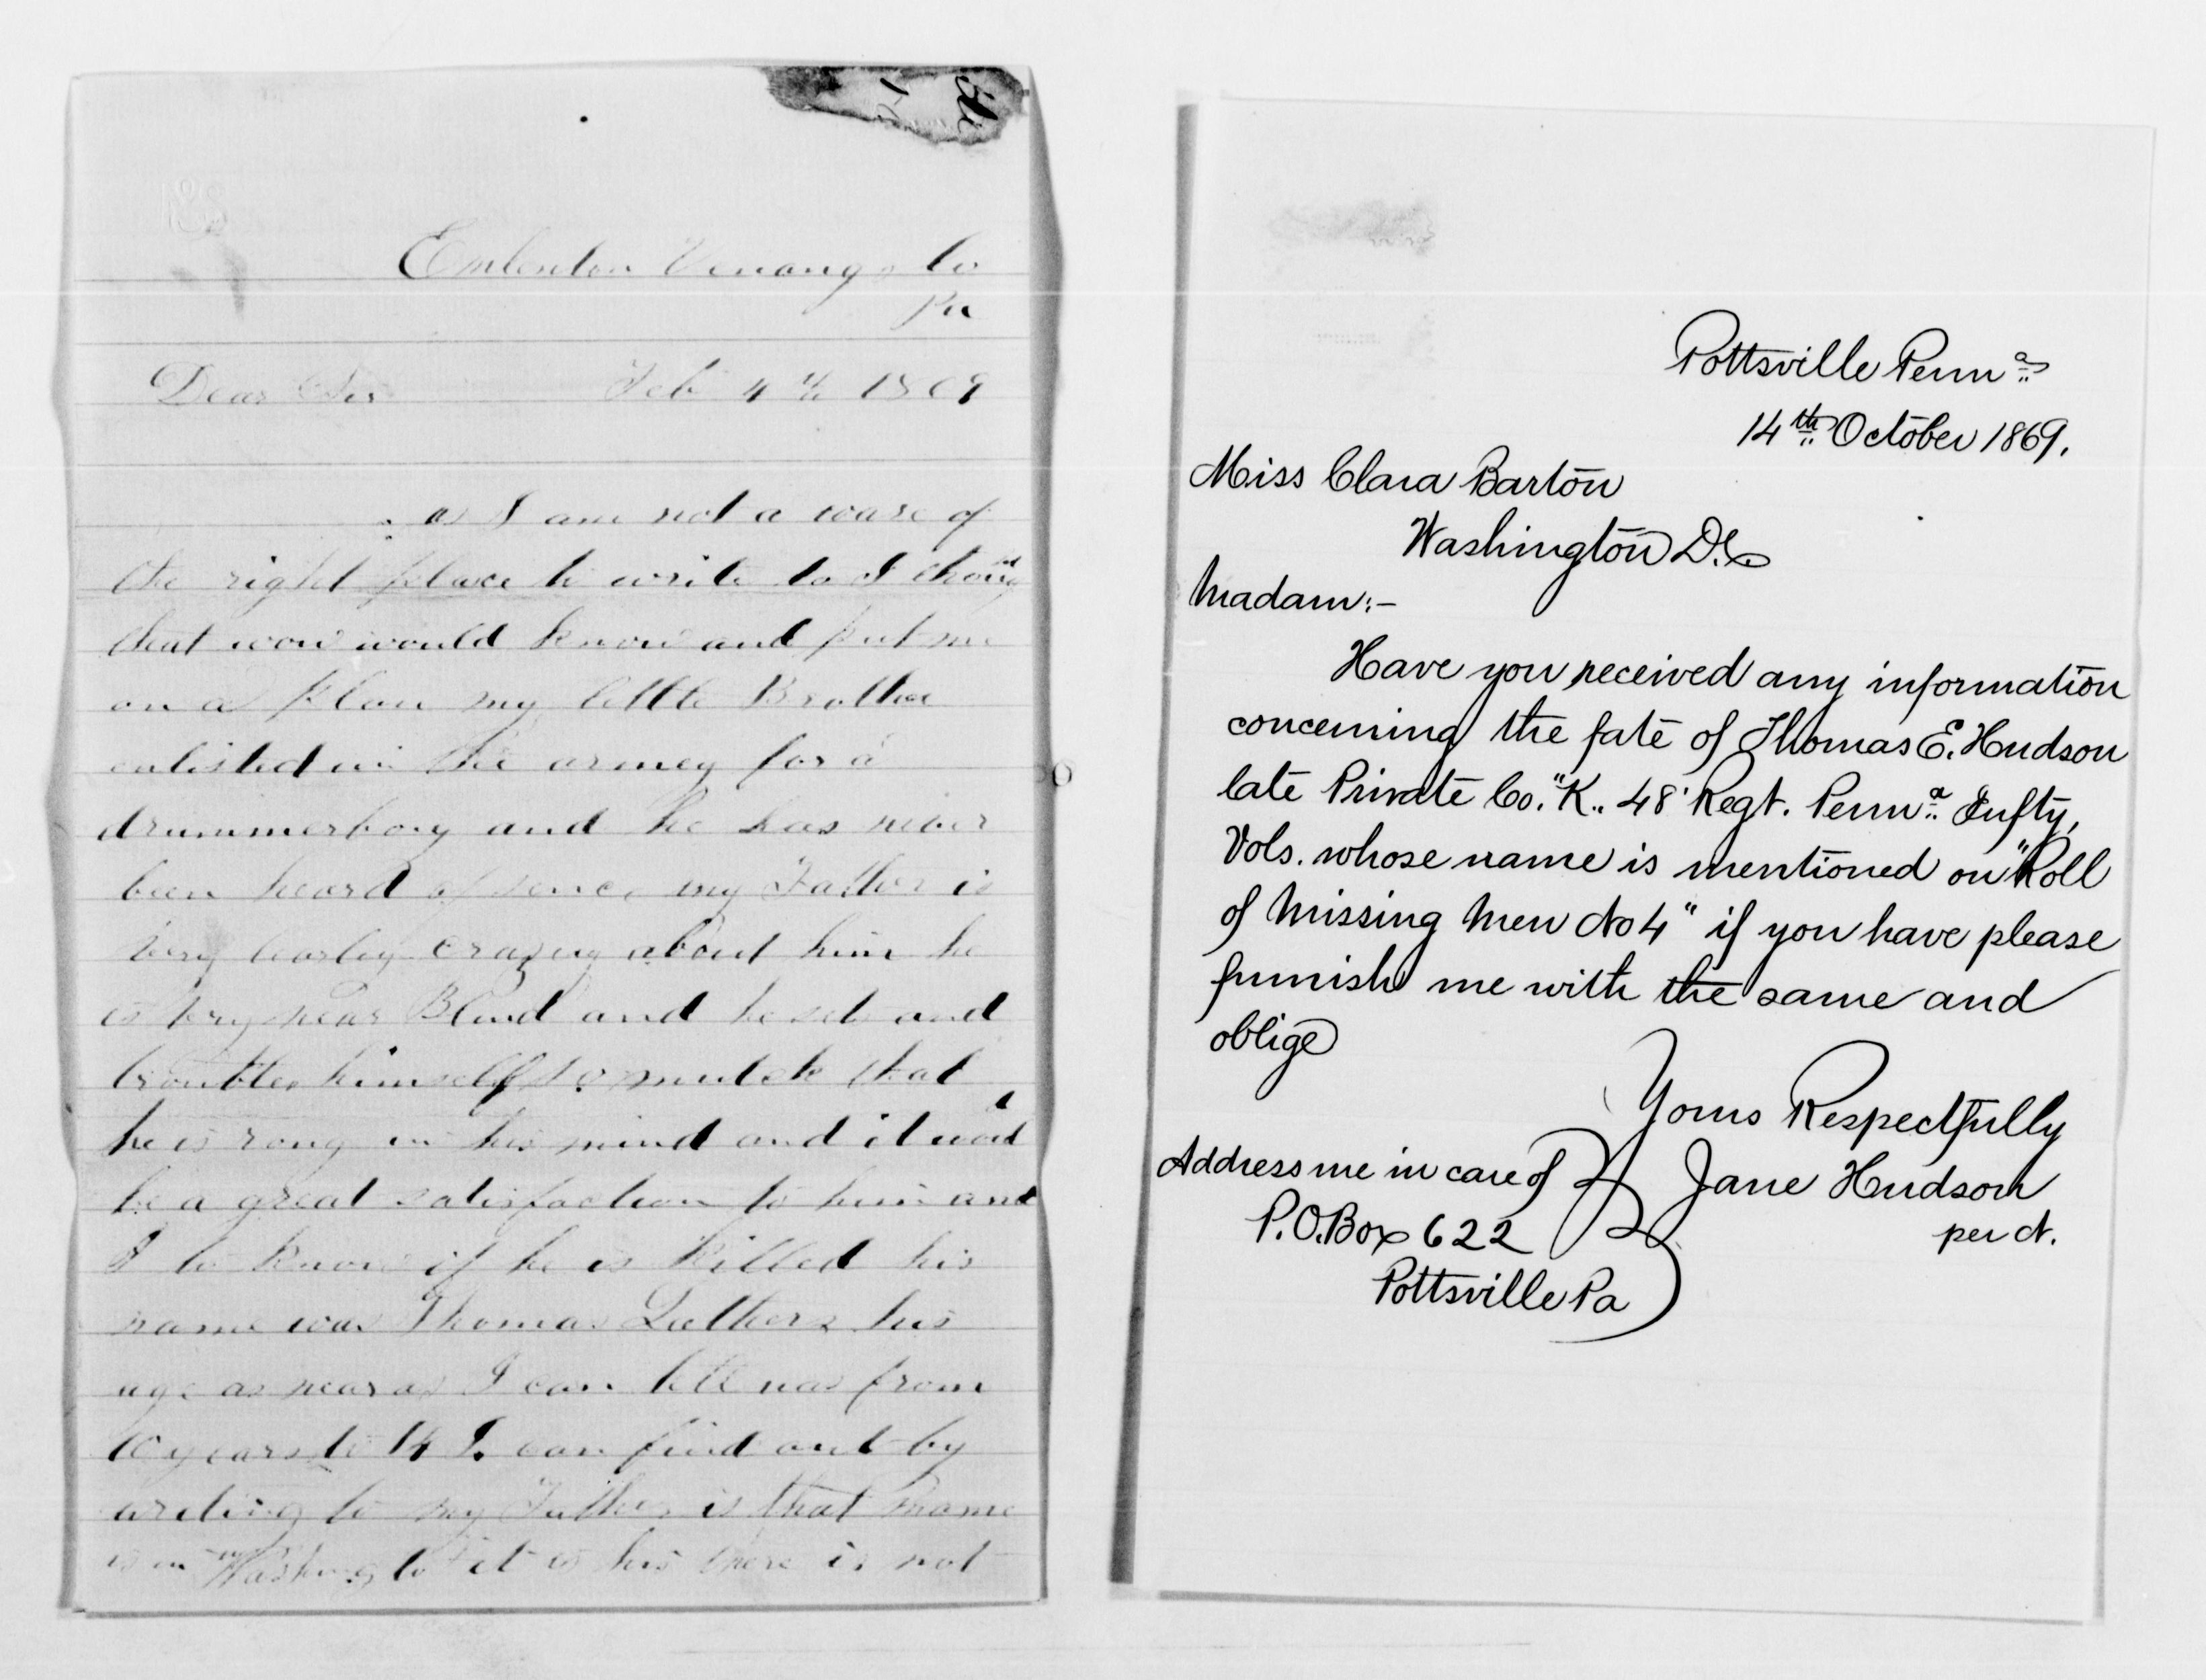 Emlenton Venango Co
Pa
Dear Sir Feb 4th 1869
as I am not a ware of
the right place to write to I thought
that wow would know and put me
on a plan my little Brother
enlisted in the armey for a
drummerboy and he has never
been heard of sence my Father is
very crazey about him he
is very near Blind and he sets and
troubles himself so mutch that
he is rong in his mind and it would
be a great satisfaction to him and
I to know if he is killed his
name was Thomas his
age as near as I can tell was from
10 years to 14 I can find out by
writing to my Father is that name
is in Washington it is his there is not
Pottsville Penna
14th October 1869.
Miss Clara Barton
Washington D.C.
Madam:-
Have you received any information
concerning the fate of Thomas E. Hudson
late Private Co. "K" 48' Regt. Penna Infty,
Vols. whose name is mentioned on "Roll
of Missing Men No 4" if you have please
furnish me with the same and
oblige
Yours Respectfully
Address me in care of Jane Hudson
P.O. Box 622 per N.
Pottsville Pa